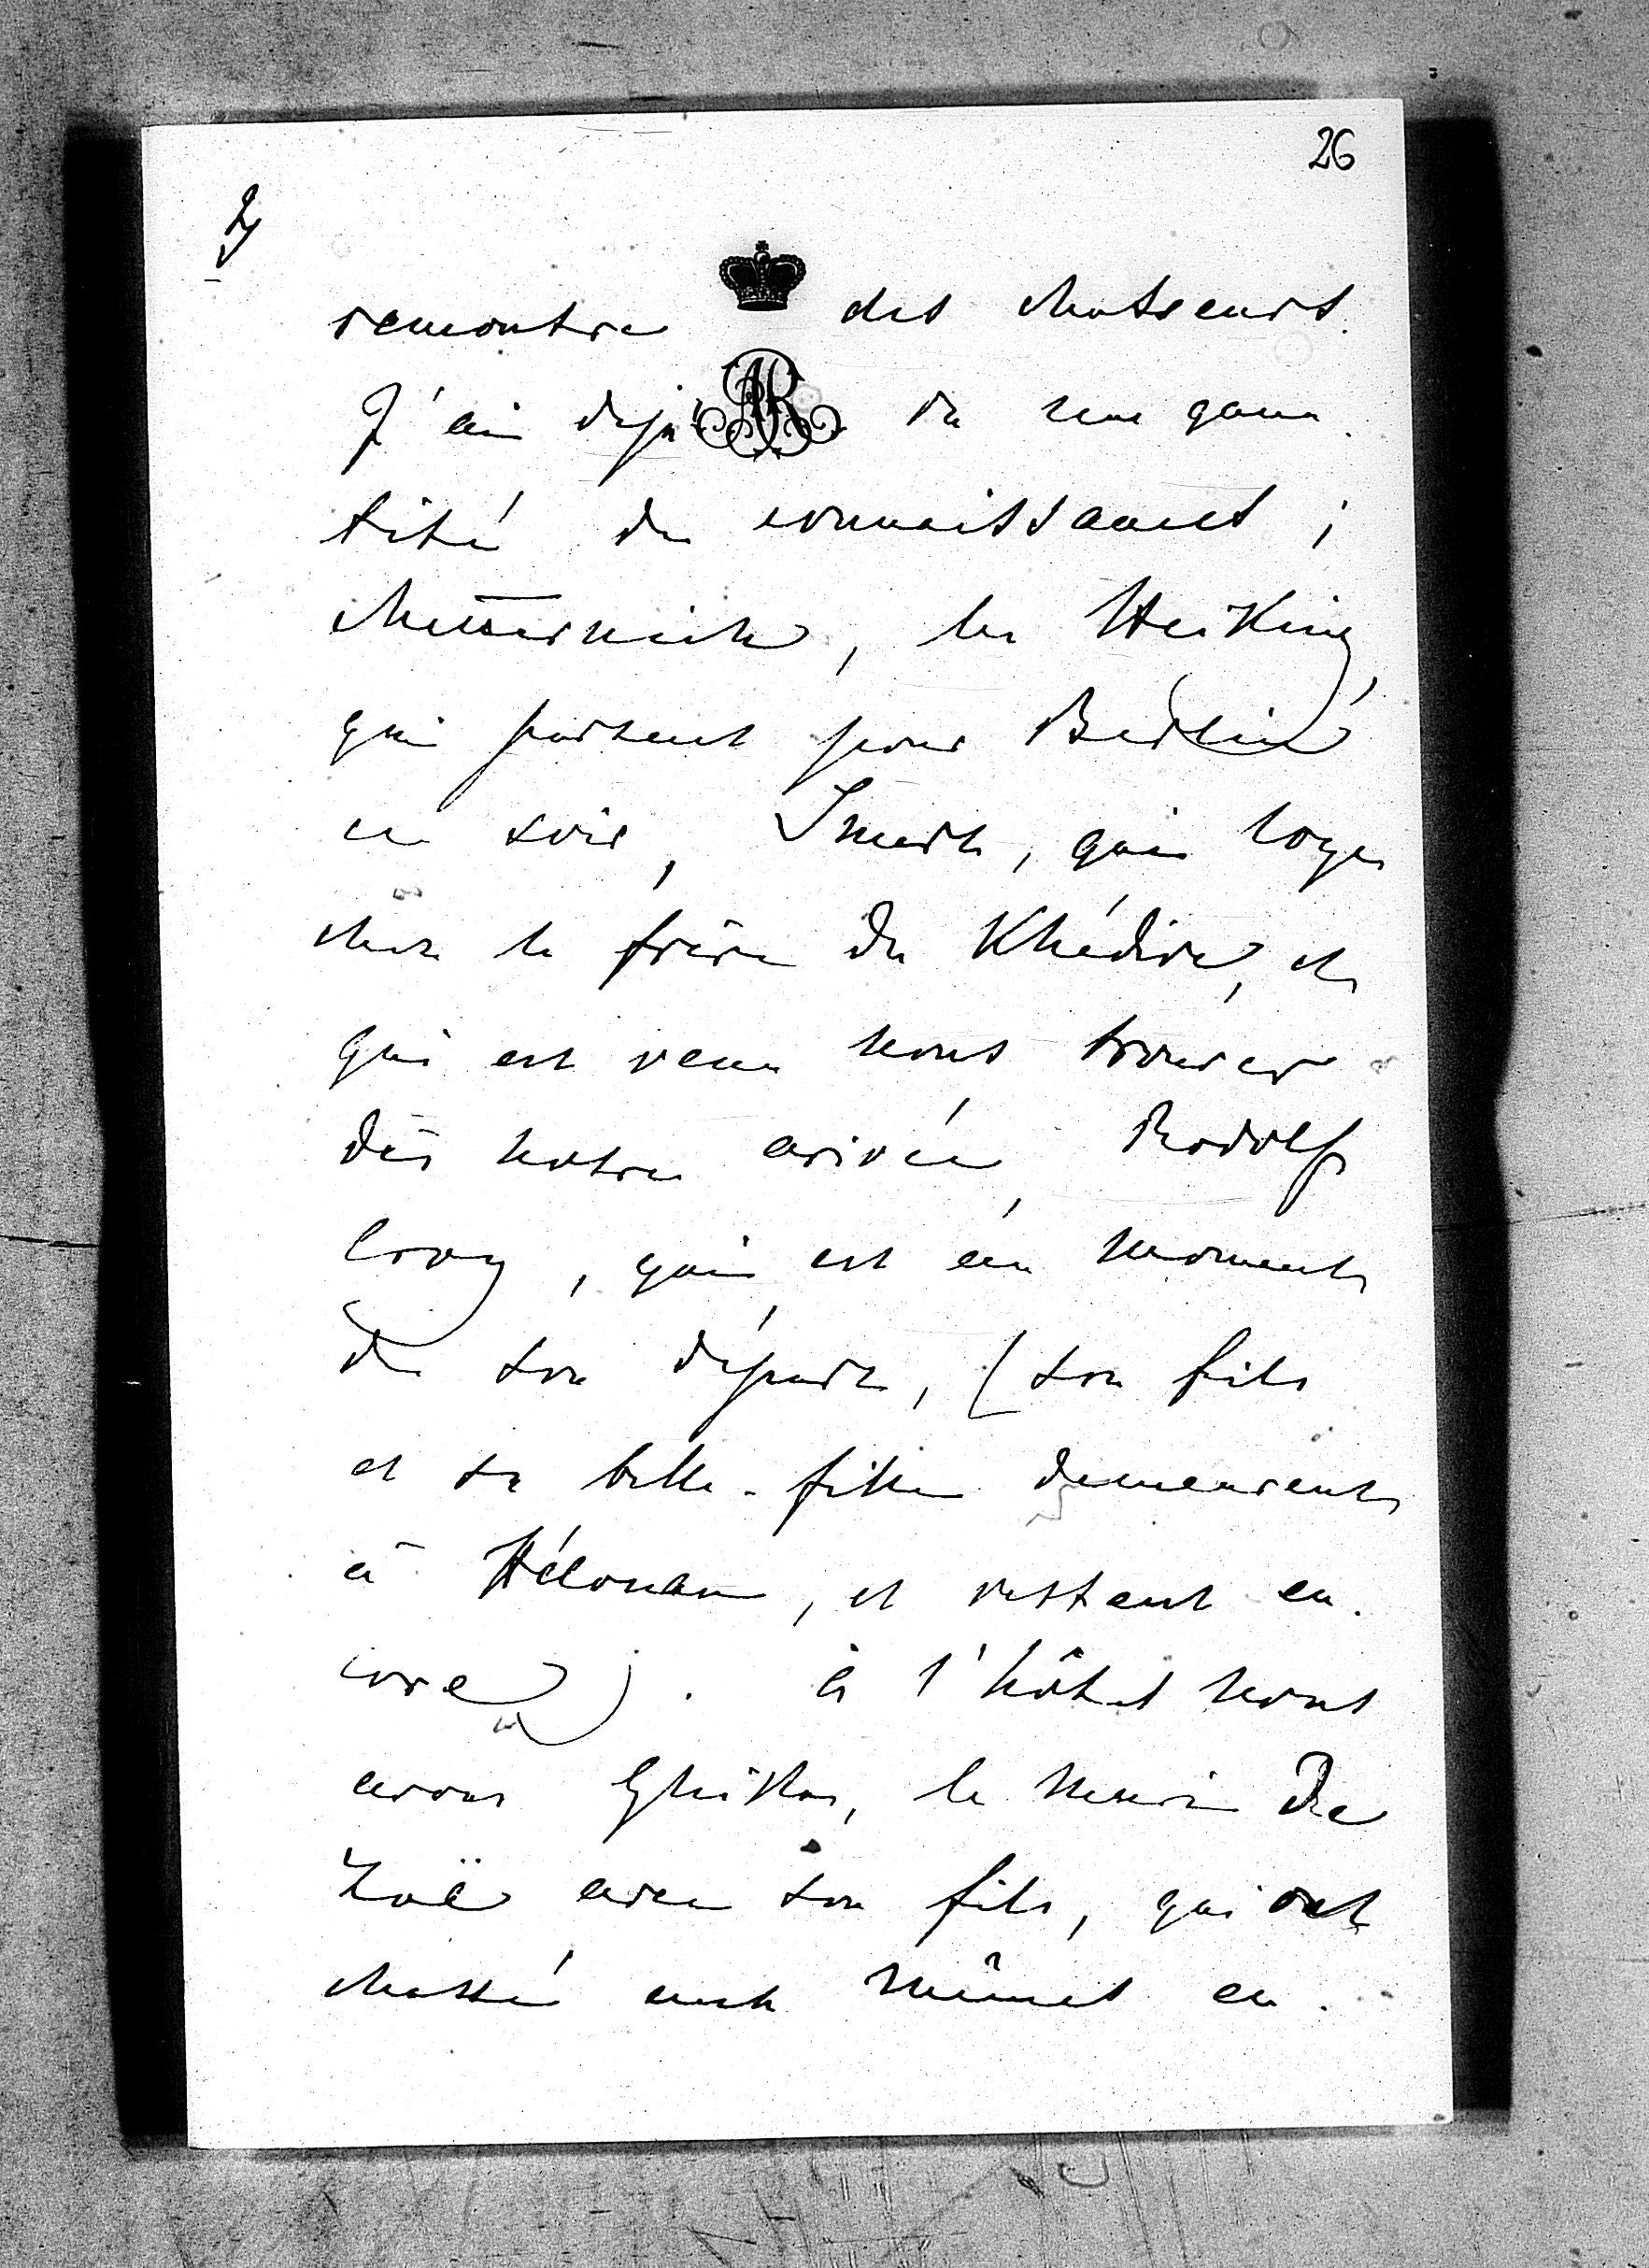 26
2)
rencontre des chasseurs.
J'ai déjà vu une quan-
tité de connaissances ;
Metternich, les Heiking,
qui partent pour Berlin
ce soir, Smert, qui loge
chez le frère du Khédive, et
qui est venu nous trouver
dès notre arivée, Rodolf
Croy, qui est au moment
de son départ, (son fils
et sa belle-fille demeurent
à Hélouan, et restent en-
core). à l'hôtel nous
avons Ghika, le mari de
Zoë avec son fils, qui ont
chassé eux mêmes en-